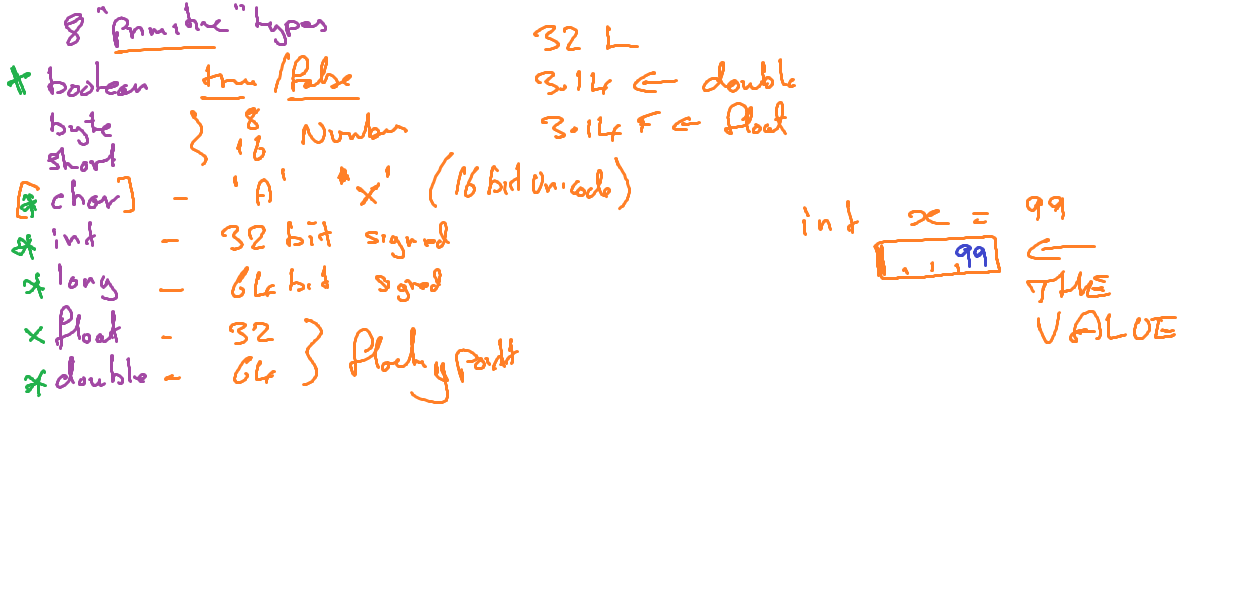 8 "Primitive" types
* boolean true / False
byte } 8 Numbers
short 16
[* char] - 'A' 'X' (16 bit Unicode)
* int - 32 bit signed
* long - 64 bit signed
x float - 32 } floating point
* double - 64
32 L
3.14 ← double
3.14 F ← float
int x = 99
99 ←
THE
VALUE